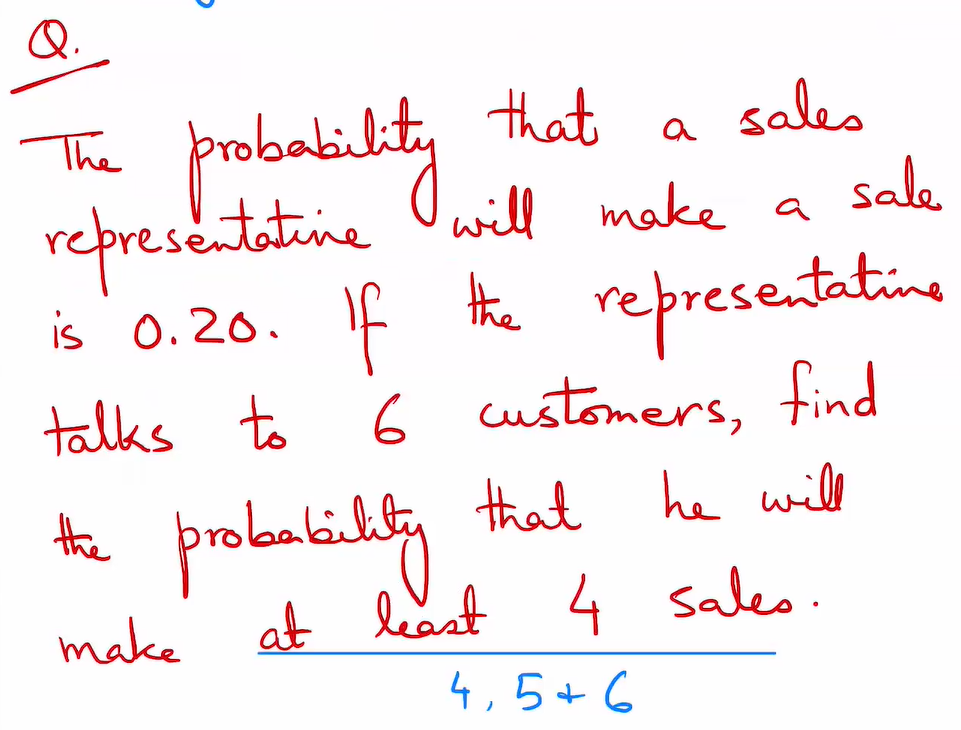 Q.
The probability that a sales
representative will make a sale
is 0.20. If the representative
talks to 6 customers, find
the probability that he will
make at least 4 sales.
4, 5 + 6